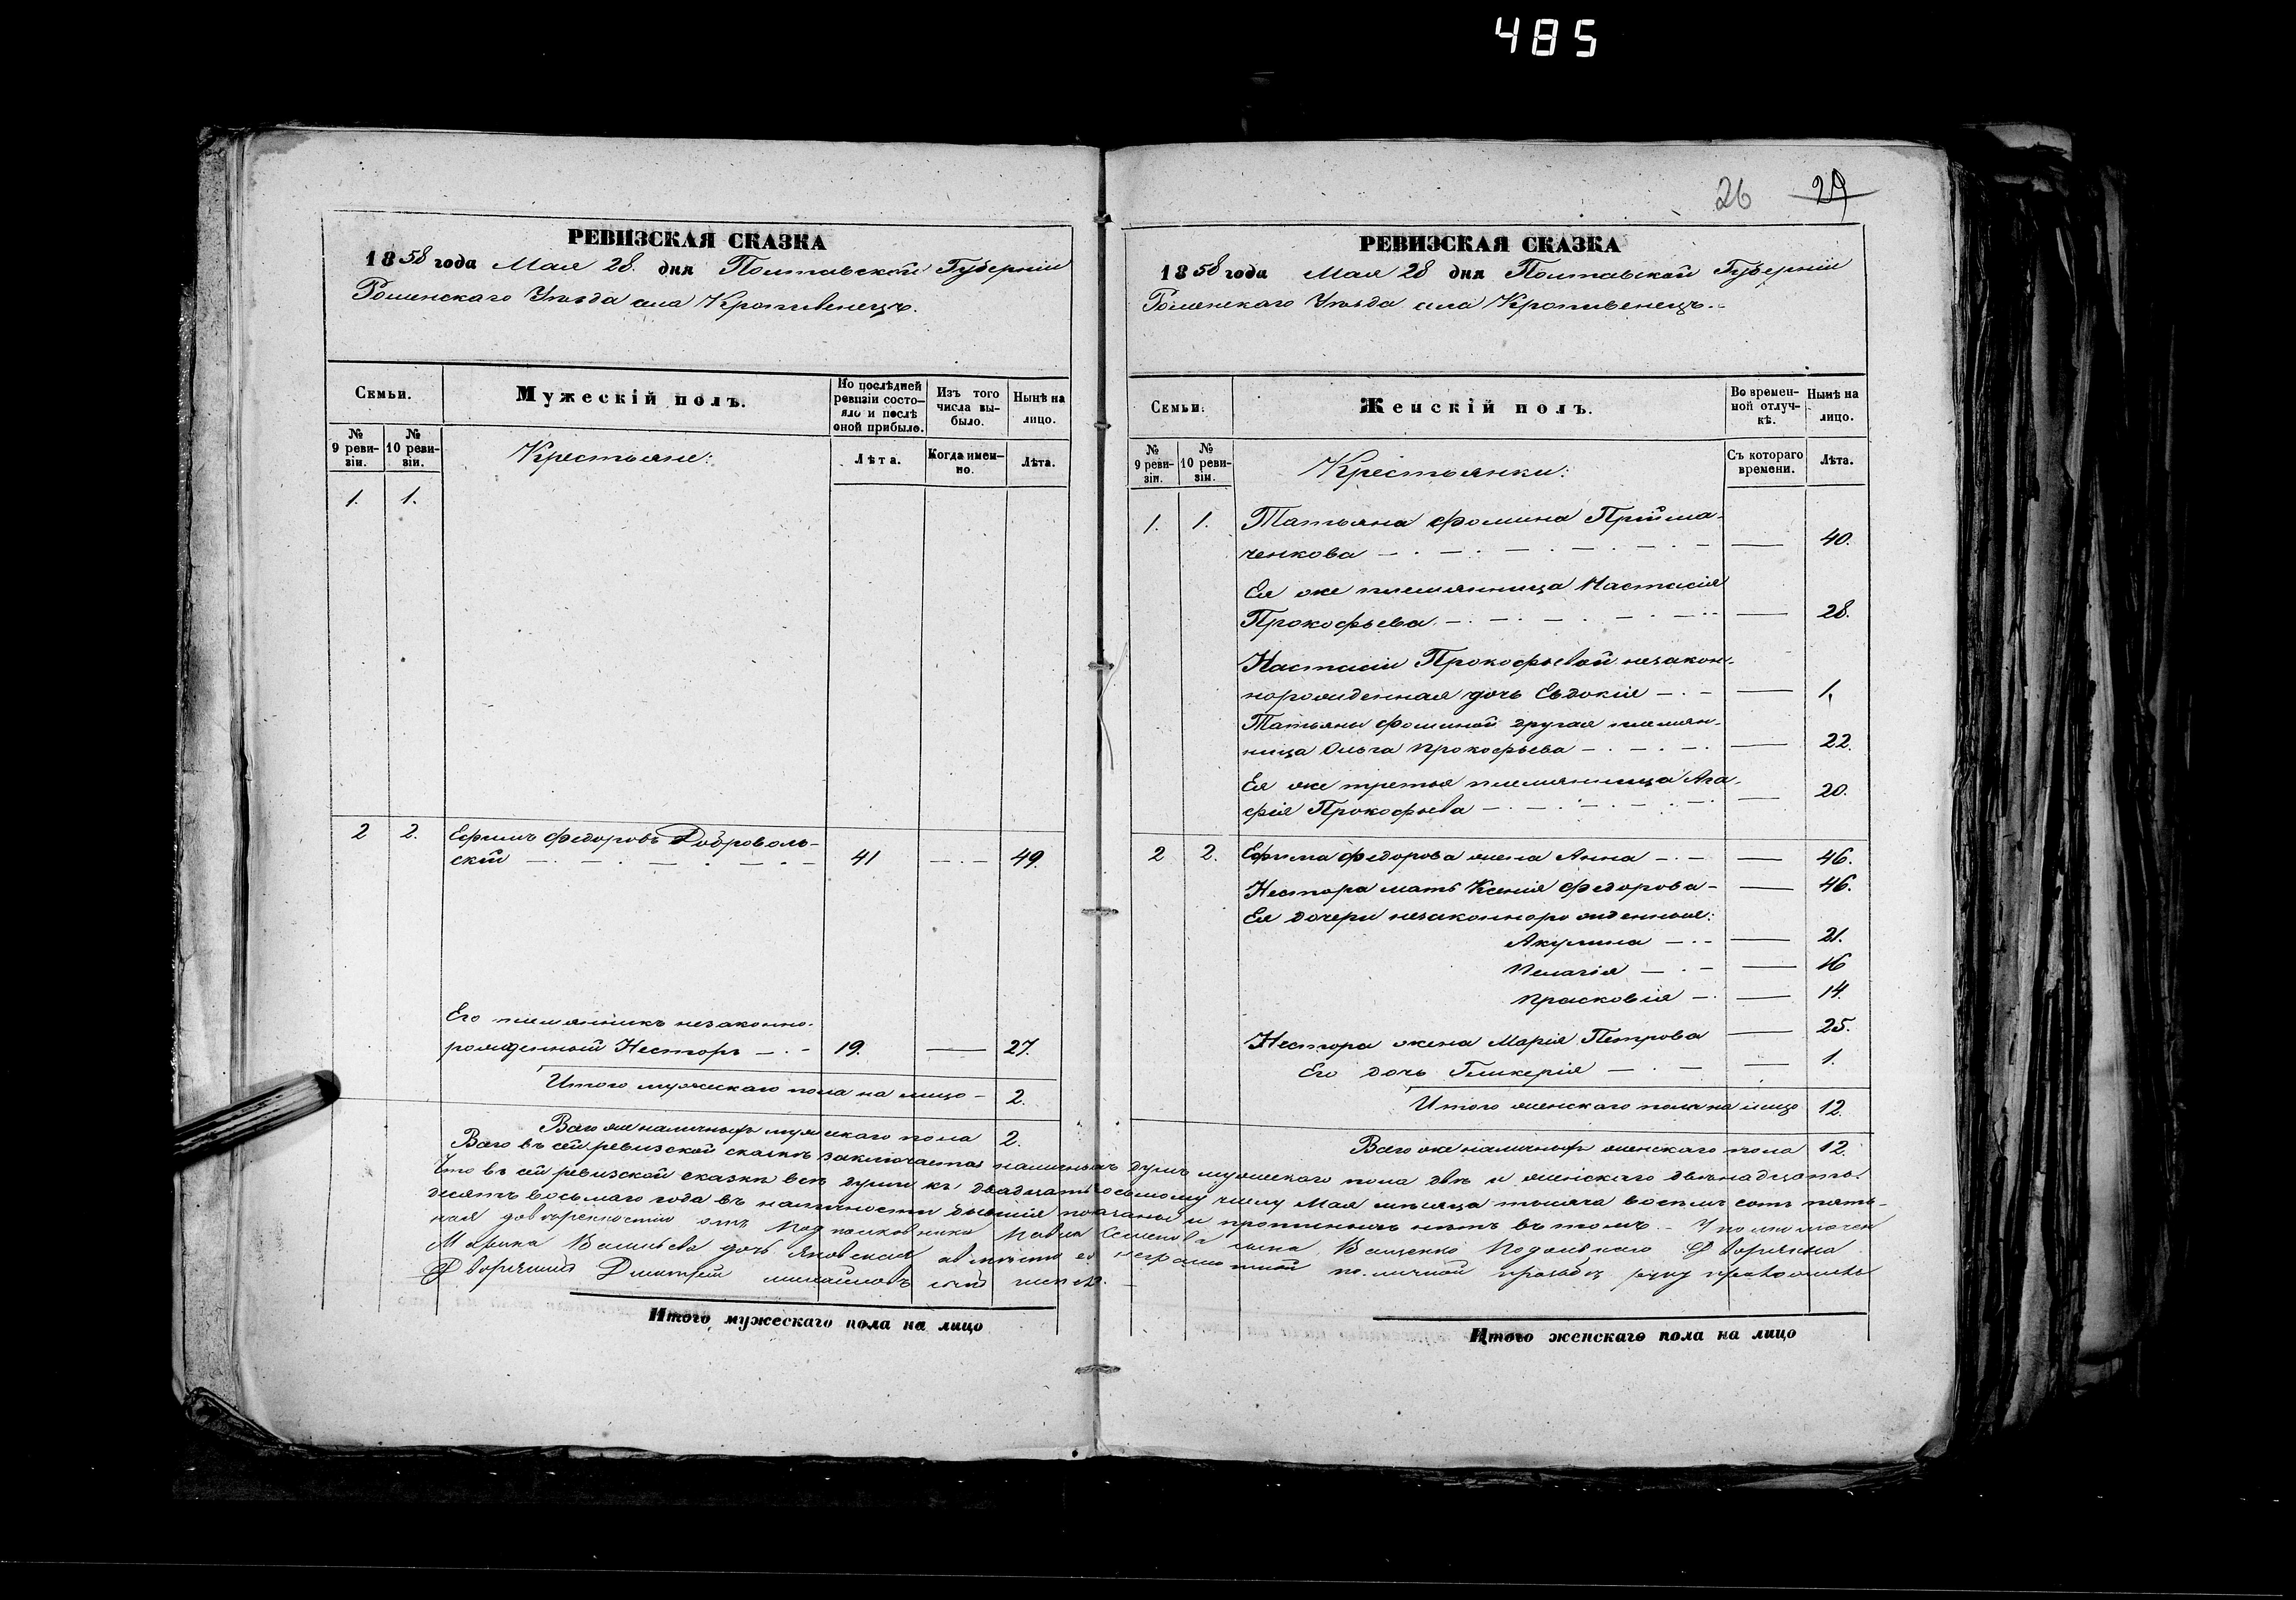 485
26 29
РЕВИЗСКАЯ СКАЗКА
1858 года Мая 28 дня Полтавской Губерніи
Роменскаго Уѣзда села Кропивенецъ.
Семьи.
Мужескій полъ.
По послѣдней ревизіи состояло и послѣ оной прибыло.
Изъ того числа выбыло.
Нынѣ на лицо.
№ 9 ревизіи.
№ 10 ревизіи.
Крестьяне:
Лѣта.
Когда именно.
Лѣта.
1. 1.
2 2. Ефимъ Федоровъ Доброволь-
скій — 41 — 49.
Его племянникъ незаконно-
рожденный Несторъ — 19. — 27.
Итого мужескаго пола на лицо — 2.
Всего же наличныхъ мужескаго пола 2.
РЕВИЗСКАЯ СКАЗКА
1858 года Мая 28 дня Полтавской Губерніи
Роменскаго Уѣзда села Кропивенецъ.
Семьи.
Женскій полъ.
Во временной отлучкѣ.
Нынѣ на лицо.
№ 9 ревизіи.
№ 10 ревизіи.
Крестьянки:
Съ котораго времени.
Лѣта.
1. 1. Татьяна Фомина Пріима-
ченкова — 40.
Ея же племянница Настасія
Прокофьева — 28.
Настасіи Прокофьевой незакон-
норожденная дочь Евдокія — 1.
Татьяны Фоминой другая племян-
ница Ольга Прокофьева — 22.
Ея же третья племянница Ага-
фія Прокофьева — 20.
2 2. Ефима Федорова жена Анна — 46.
Нестора мать Ксенія Федорова — 46.
Ея дочери незаконнорожденные:
Акулина — 21.
Пелагія — 16
Прасковія — 14.
Нестора жена Марія Петрова — 25.
Его дочь Гликерія — 1.
Итого женскаго пола на лицо 12.
Всего же наличныхъ женскаго пола 12.
Всего въ сей ревизской сказкѣ заключается наличныхъ душъ мужескаго пола двѣ и женскаго двѣнадцать.
Что въ сей ревизской сказкѣ всѣ души къ двадцать осьмому числу Мая мѣсяца тысяча восемь сотъ пять-
десятъ восьмаго года въ наличности бывшія показаны и прописныхъ нѣтъ въ томъ. — Уполномочен
ная довѣренностію отъ Подполковника Павла Семенова сына Ващенко Подольскаго Дворянка
Марина Васильева дочь Яновская а вмѣсто ея неграмотной по личной просьбѣ руку приложилъ
Дворянинъ Дмитрій Михайловъ сынъ
Итого мужескаго пола на лицо
Итого женскаго пола на лицо